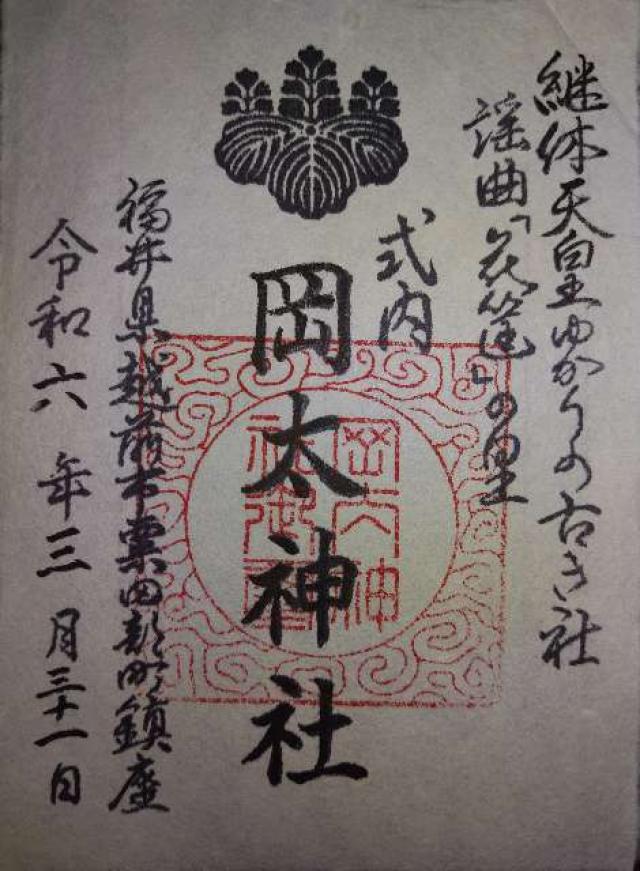 継体天皇ゆかりの古き社
謡曲「花筐」の里
式内
岡太神社
福井県越前市粟田部町鎮座
令和六年三月三十一日